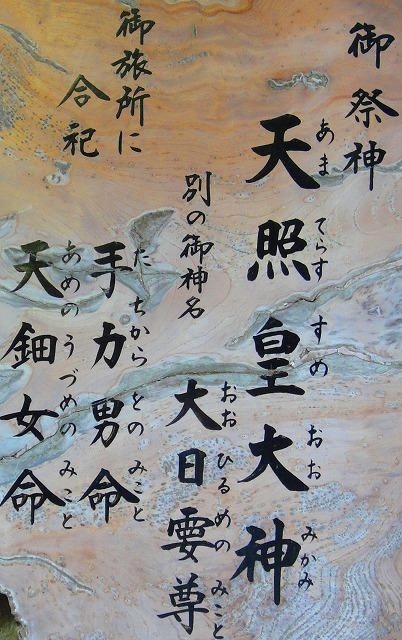 御祭神
天照皇大神
あまてらすすめおおみかみ
別の御神名
大日孁尊
おおひるめのみこと
御旅所に
合祀
手力男命
たちからをのみこと
天鈿女命
あめのうづめのみこと